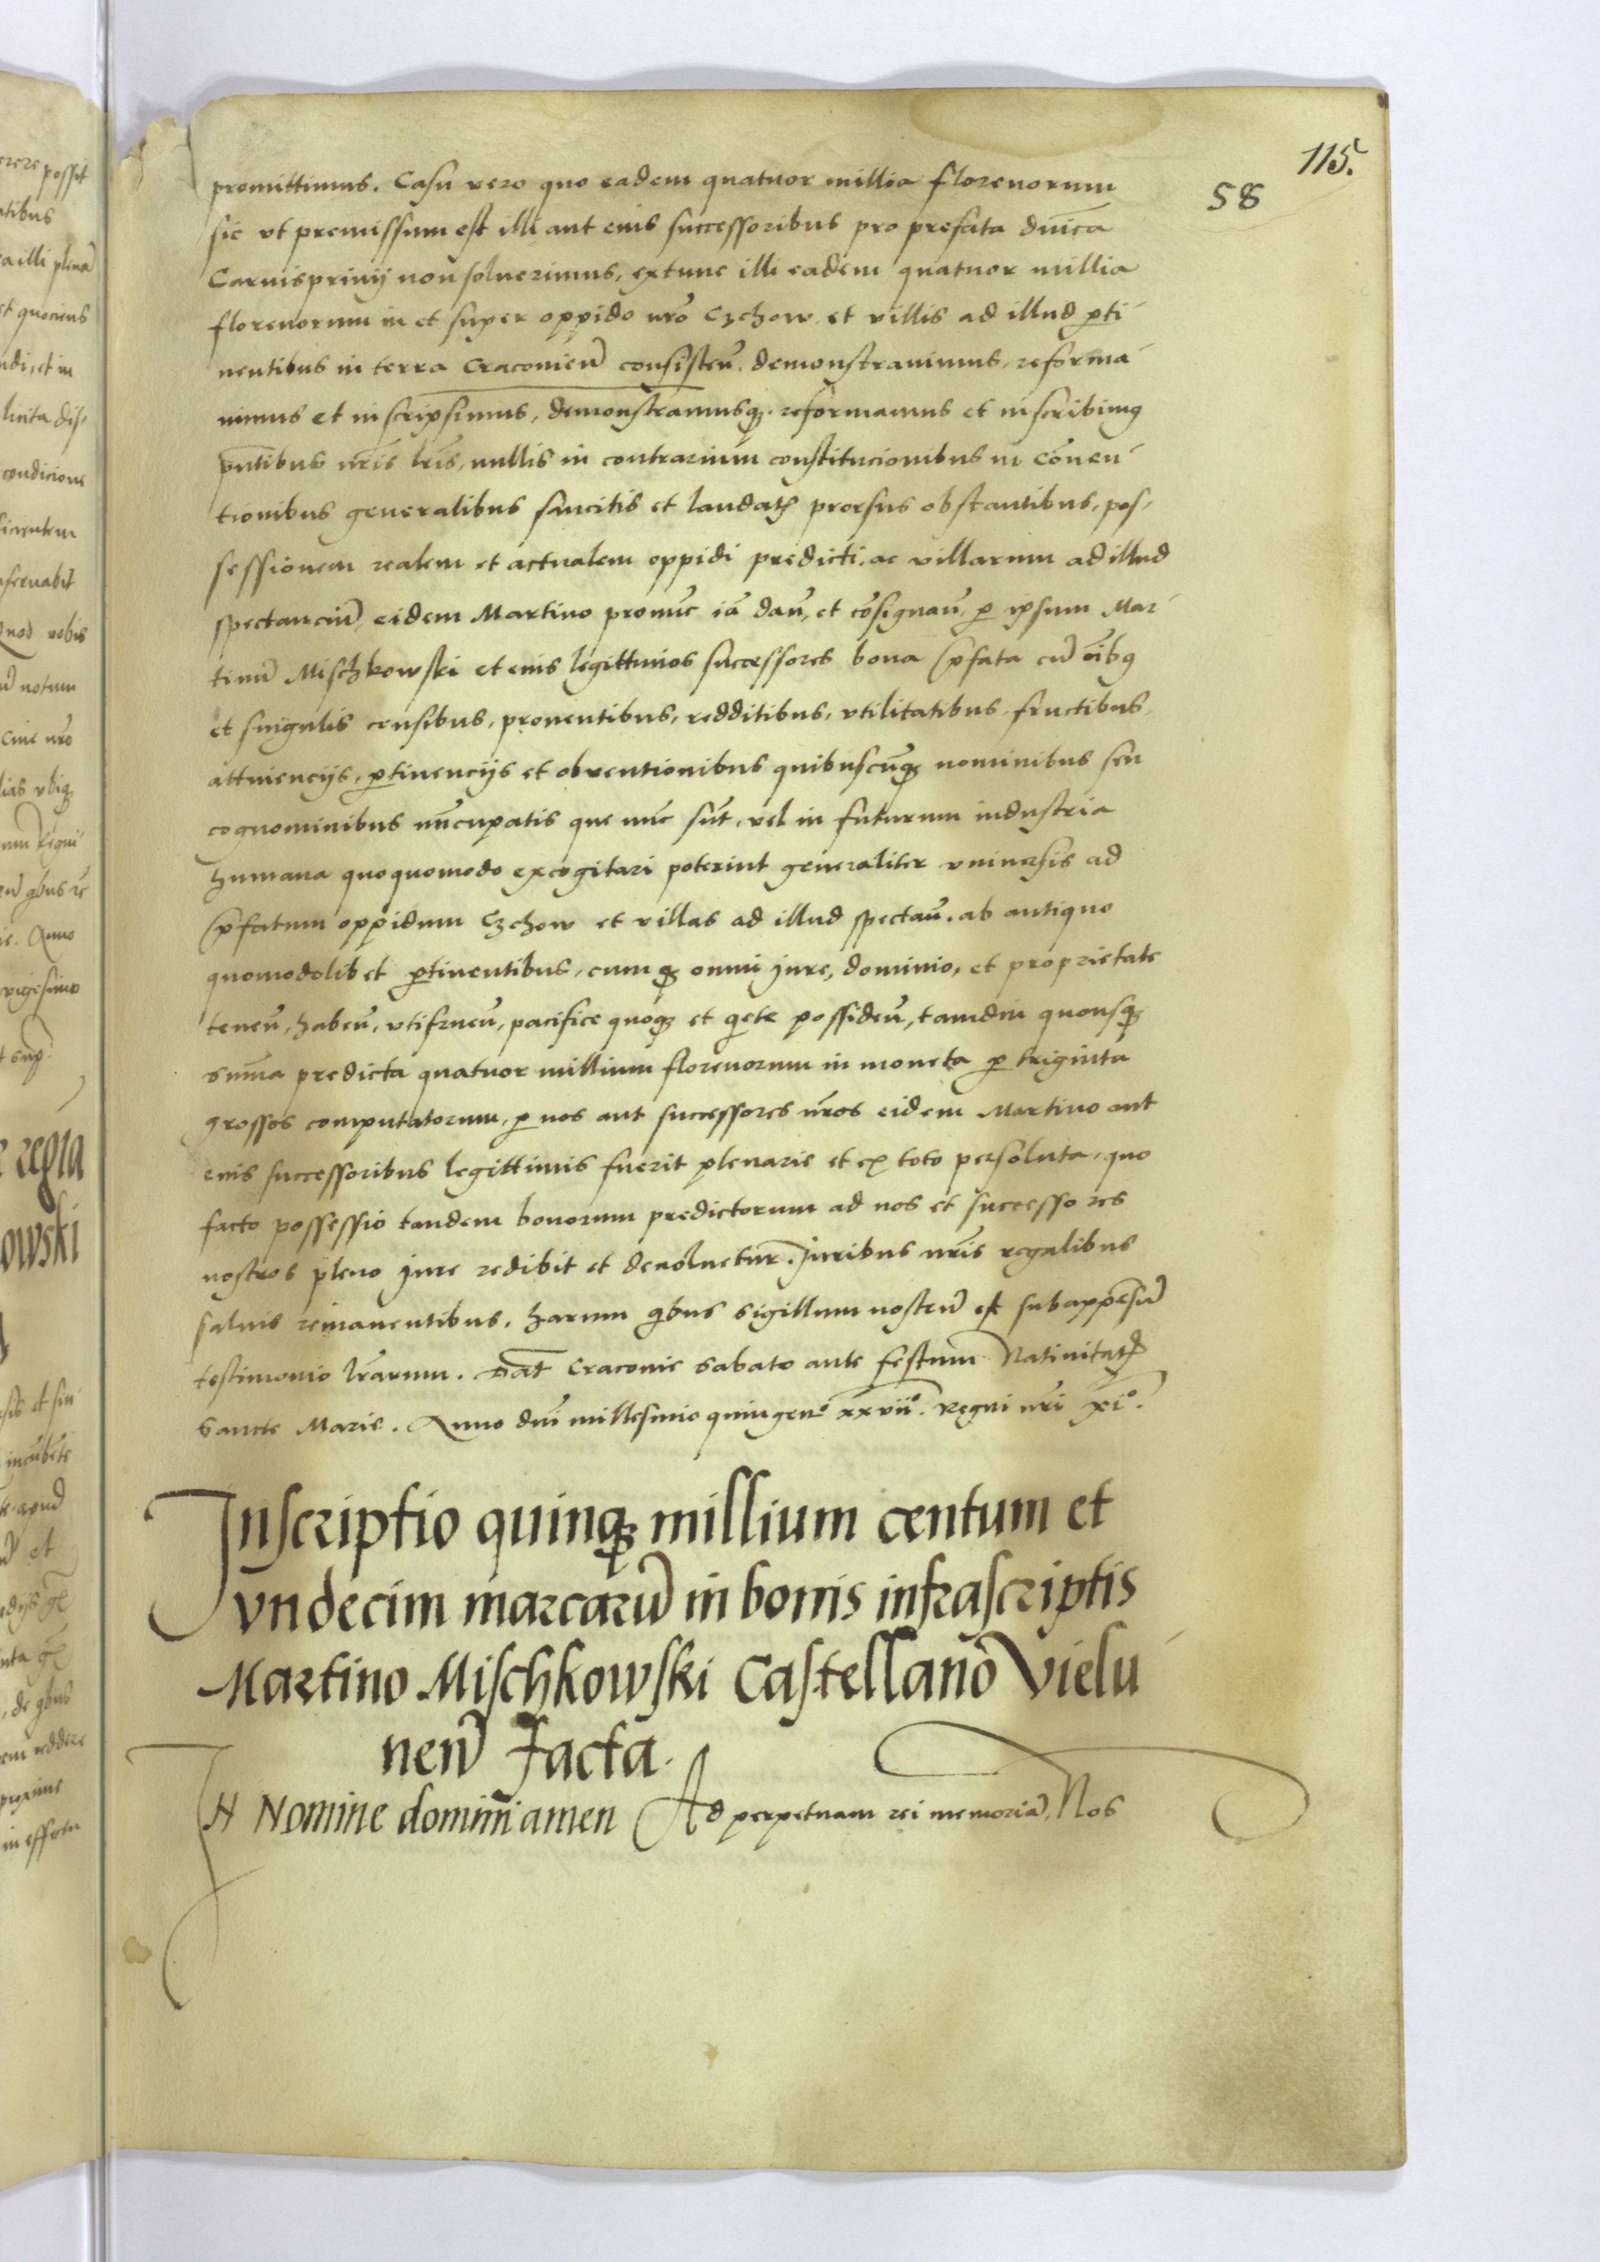 115.
58
promittimus. Casu vero quo eadem quatuor millia florenorum
sic vt premissum est illi aut eius successoribus pro prefata dn̄ica
Carnisprivij non solverimus, extunc illi eadem quatuor millia
florenorum in et super oppido nr̄o Czchow et villis ad illud ꝑti
nentibus in terra Cracovien̄ consisten̄. demonstravimus, reforma
vimus et inscripsimus, demonstramusqꝫ. reformamus et inscribimꝰ
pn̄tibus nr̄is lr̄is, nullis in contrarium constitucionibus in Cōven
tionibus generalibus sancitis et laudatꝭ prorsus obstantibus, pos-
sessionem realem et actualem oppidi predicti, ac villarum ad illud
spectanciū, eidem Martino pronūc iā dan̄, et cōsignan̄, ꝑ ipsum Mar
tinū Mischkowski et eius legittimos successores bona p̄fata cū oībꝰ
et singulis censibus, proventibus, redditibus, vtilitatibus fructibus
attinencijs, ꝑtinencijs et obventionibus quibuscūqꝫ nominibus seu
cognominibus nūcupatis que nūc sūt, vel in futurum industria
humana quoquomodo excogitari poterint generaliter vniversis ad
p̄fatum oppidum Czchow et villas ad illud spectan̄. ab antiquo
quomodolibet ꝑtinentibus, cumqꝫ omni jure, dominio, et proprietate
tenen̄, haben̄, vtifruen̄, pacifice quoqꝫ et qiete possiden̄, tamdiu quousqꝫ
sūma predicta quatuor millium florenorum in moneta ꝑ triginta
grossos computatorum, ꝑ nos aut successores nr̄os eidem Martino aut
eius successoribus legittimis fuerit plenarie et ex toto persoluta, quo
facto possessio tandem bonorum predictorum ad nos et successores
nostros pleno jure redibit et devolvetur. Juribus nr̄is regalibus
salvis remanentibus. harum qibus sigillum nostrū est subappēsū
testimonio lr̄arum. Dat̄ Cracovie sabato ante festum Nativitatꝭ
Sancte Marie. Anno dn̄i millesimo quingen̊ xxvii̊. Regni nr̄i xi̊.
Inscriptio quinqꝫ millium centum et
vndecim marcarū in bonis infrascriptis
Martino Mischkowski Castellano Vielu
nen̄ facta.
IN Nomine domini amen Ad perpetuam rei memoriā, Nos